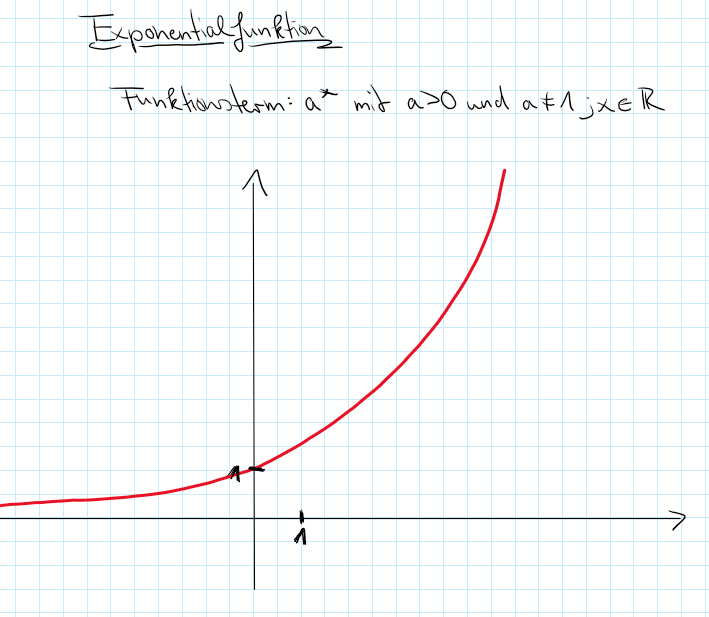 Exponentialfunktion
Funktionsterm: aˣ mit a>0 und a≠1 ; x∈ℝ
1
1